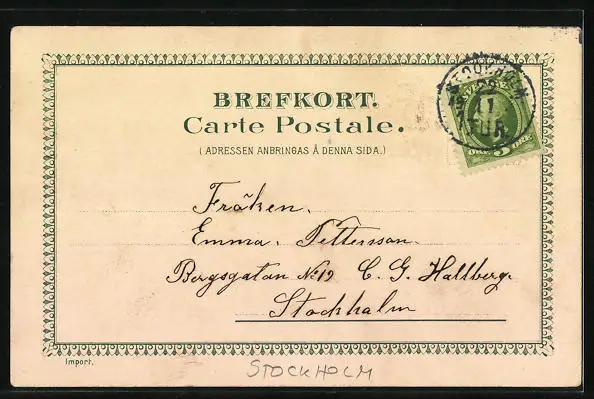 BREFKORT.
Carte Postale.
(ADRESSEN ANBRINGAS Å DENNA SIDA.)
STOCKHOLM
29
11
TUR.
5 ÖRE
Fröken.
Emma. Pettersson.
Bergsgatan No 19 C. G. Hallberg.
Stockholm
Import.
STOCKHOLM